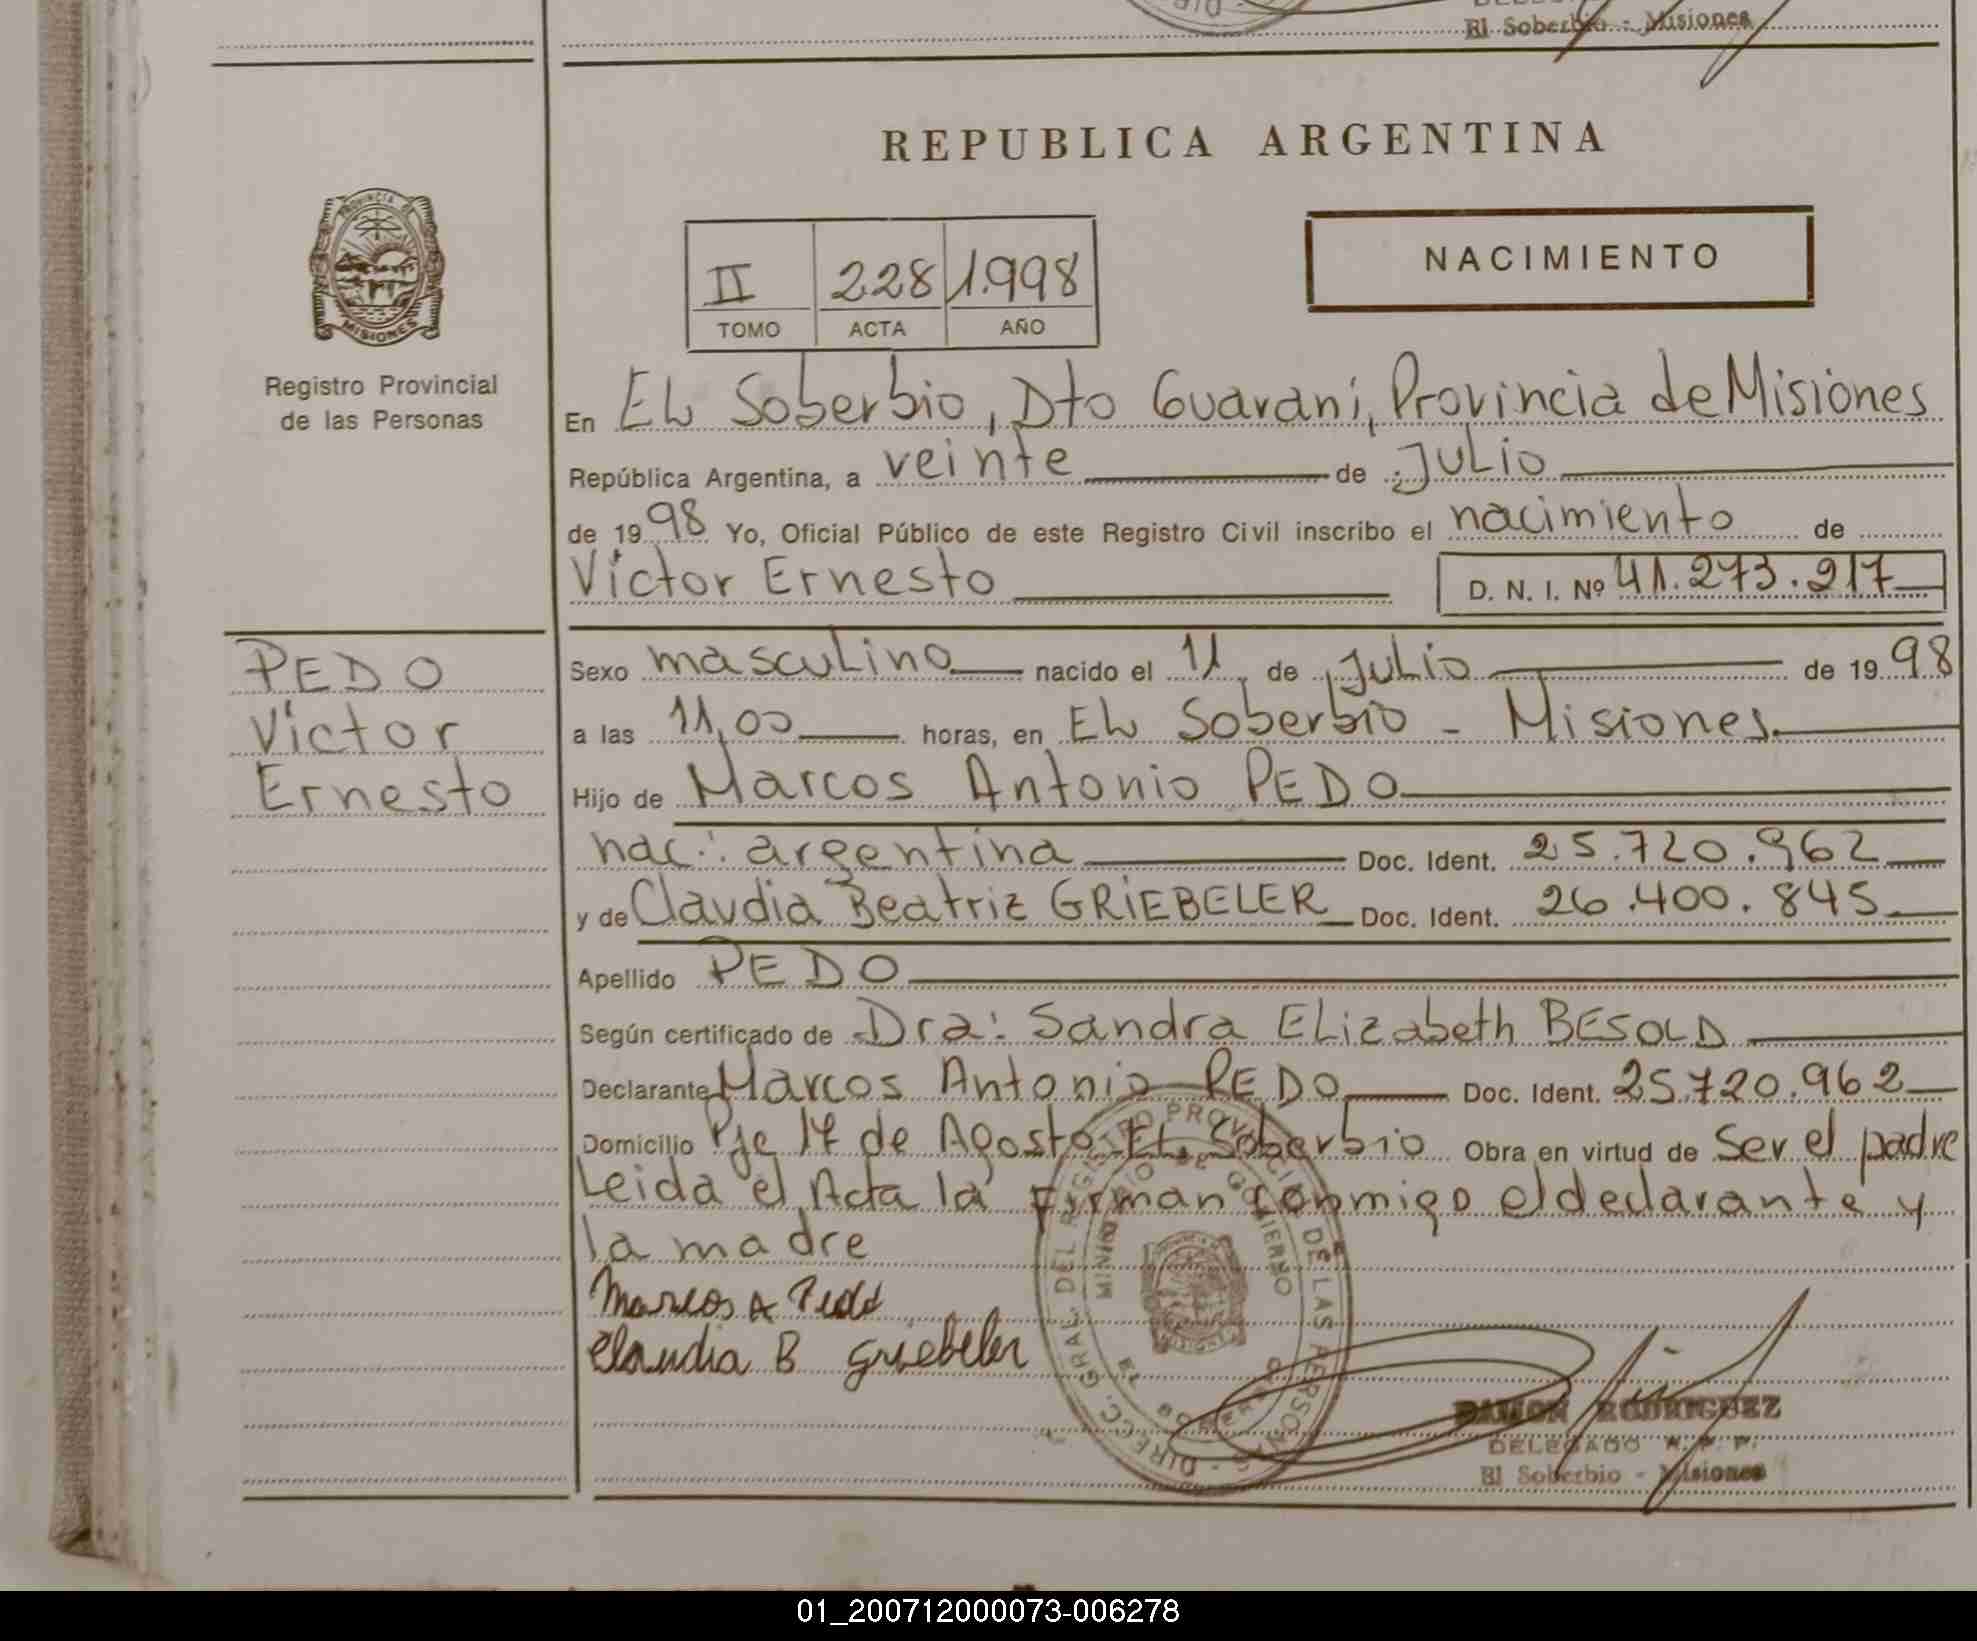 El Soberbio - Misiones
REPUBLICA ARGENTINA
PROVINCIA DE
MISIONES
Registro Provincial
de las Personas
II 228 1.998
TOMO ACTA AÑO
NACIMIENTO
En EL Soberbio, Dto Guaraní, Provincia de Misiones
República Argentina, a veinte de JuLio
de 1998 Yo, Oficial Público de este Registro Civil inscribo el nacimiento de
Víctor Ernesto D. N. I. Nº 41.273.217
PEDO
Víctor
Ernesto
Sexo mascuLino nacido el 11 de JuLio de 1998
a las 11,00 horas, en EL Soberbio - Misiones
Hijo de Marcos Antonio PEDO
nac: argentina Doc. Ident. 25.720.962
y de Claudia Beatriz GRIEBELER Doc. Ident. 26.400.845
Apellido PEDO
Según certificado de Dra: Sandra ELizabeth BESOLD
Declarante Marcos Antonio PEDO Doc. Ident. 25.720.962
Domicilio Pje 17 de Agosto EL Soberbio Obra en virtud de Ser el padre
Leida el Acta la Firman conmigo el declarante y
la madre
Marcos A Pedo
Claudia B Griebeler
DIRECC. GRAL. DEL REGISTRO PROVINCIAL DE LAS PERSONAS
MINISTERIO DE GOBIERNO
RAMON RODRIGUEZ
DELEGADO
El Soberbio - Misiones
01_200712000073-006278